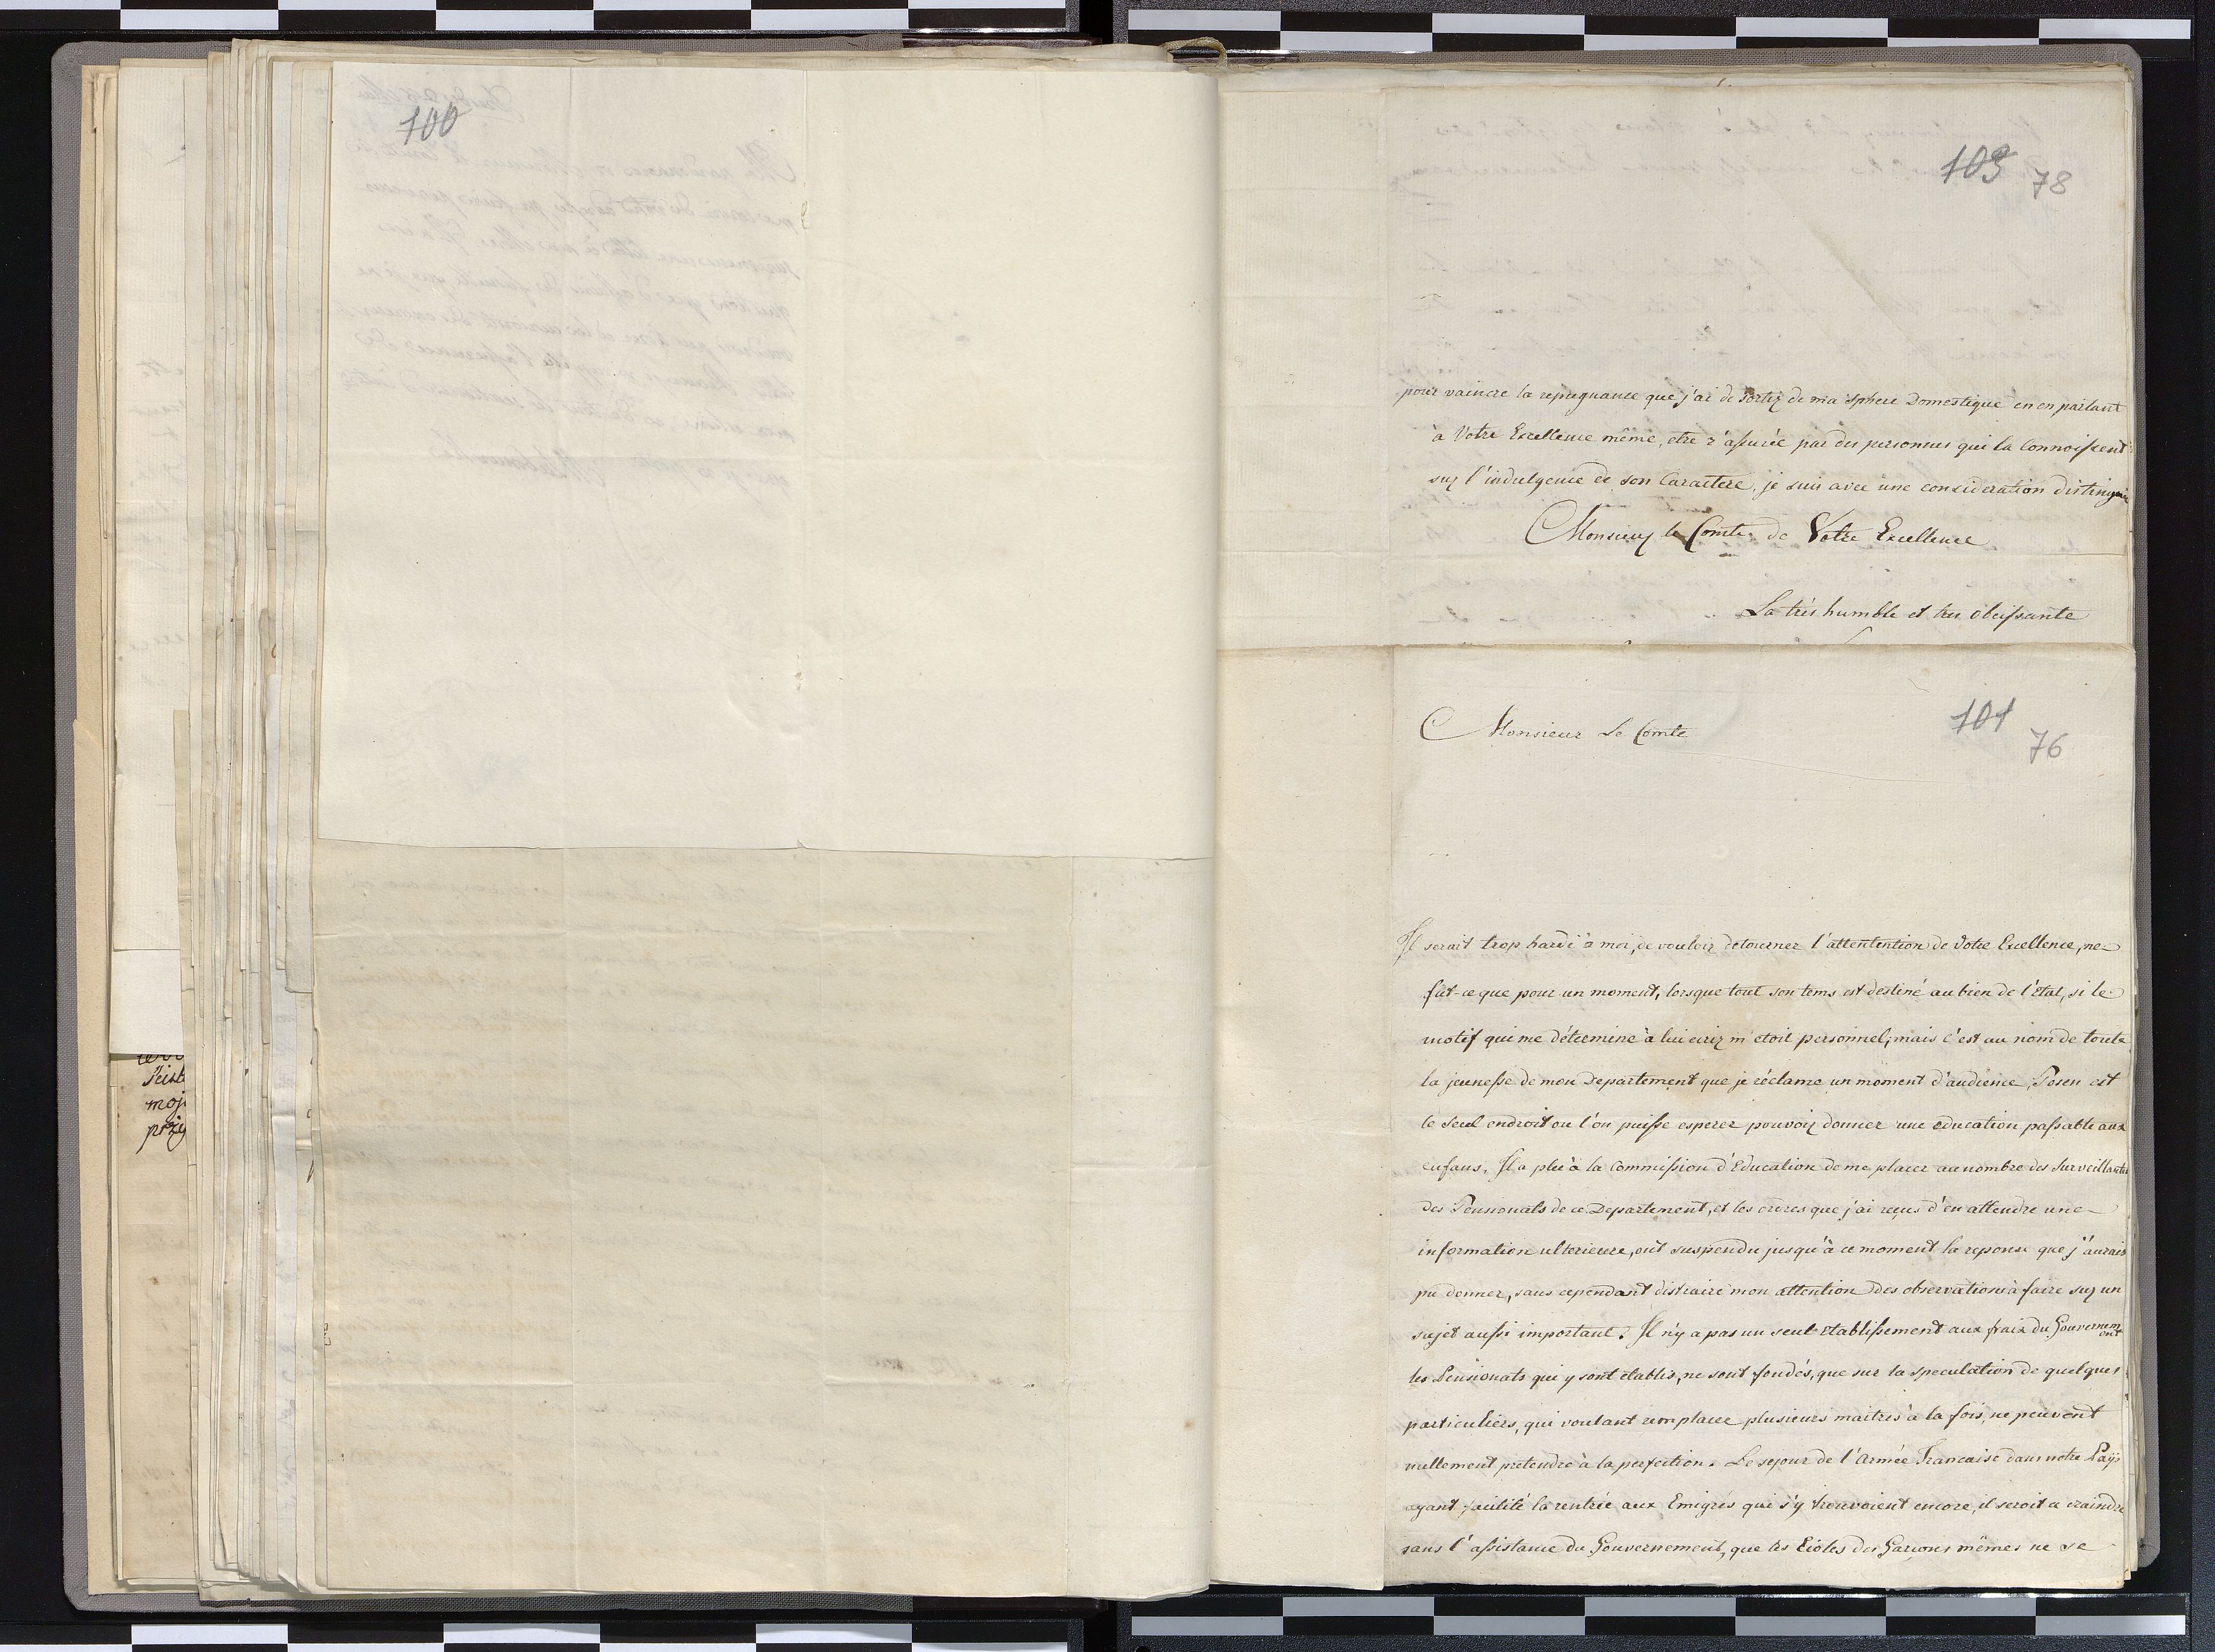 100
cer
moj
przy
103 78
pour vaincre la repugnance que j'ai de sortir de ma sphere Domestique en en parlant
à Votre Excellence même, etre r'assurée par des personnes qui la Connoissent
sur l'indulgence de son Caractere, je suis avec une consideration distinguée
Monsieur le Comte de Votre Excellence
La très humble et tres obeissante
101
76
Monsieur Le Comte
Il serait trop hardi à moi, de vouloir detourner l'attentention de Votre Excellence, ne
fut-ce que pour un moment, lorsque tout son tems est destiné au bien de l'Etat, si le
motif qui me détermine à lui ecrir m'etoit personnel; mais c'est au nom de toute
la jeunesse de mon Departement que je réclame un moment d'audience. Posen est
le seul endroit ou l'on puisse esperer pouvoir donner une education passable aux
enfans. Il a plu à la Commission d'Education de me placer au nombre des Surveillantes
des Pensionats de ce Departement, et les ordres que j'ai reçus d'en attendre une
information ulterieure, ont suspendu jusqu'à ce moment la reponse que j'aurais
pu donner, sans cependant distraire mon attention des observations à faire sur un
sujet aussi important. Il n'y a pas un seul etablissement aux fraix du Gouvernement
les Pensionats qui y sont etablis, ne sont fondés, que sur la speculation de quelques
particuliers, qui voulant remplacer plusieurs maitres à la fois, ne peuvent
nullement pretendre à la perfection. Le sejour de l'Armée Francaise dans notre Païs
ayant facilité la rentrée aux Emigrés qui s'y trouvoient encore, il seroit a craindre
sans l'assistance du Gouvernement, que les Ecoles des Garçons mêmes ne se